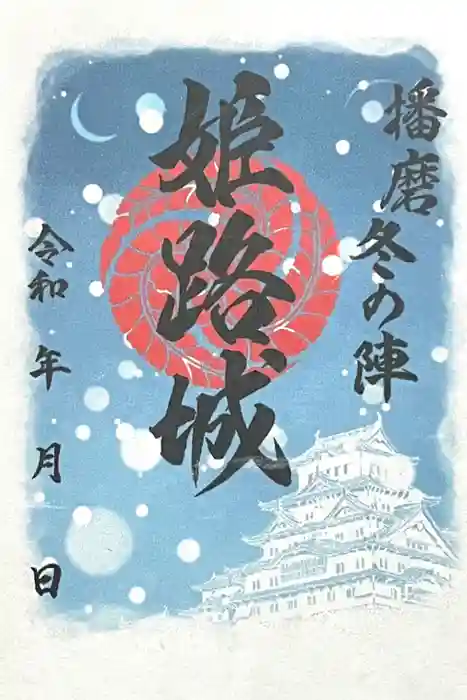 播磨
冬の陣
姫路城
令和 年 月 日